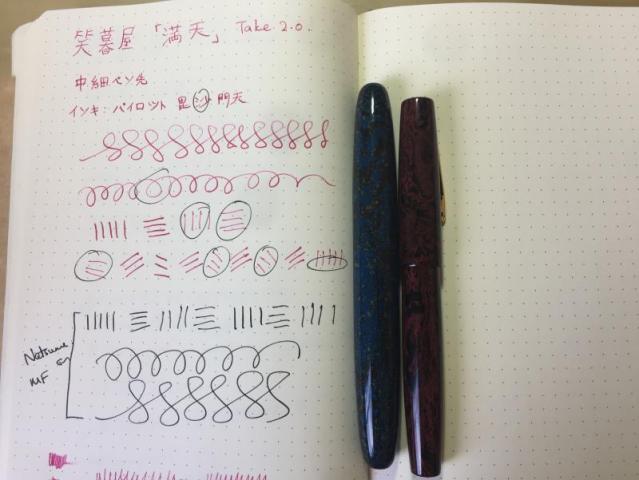 笑暮屋 「満天」 Take 2.0.
中細ペン先
インキ: パイロット 毘沙門天
Natsume
MF